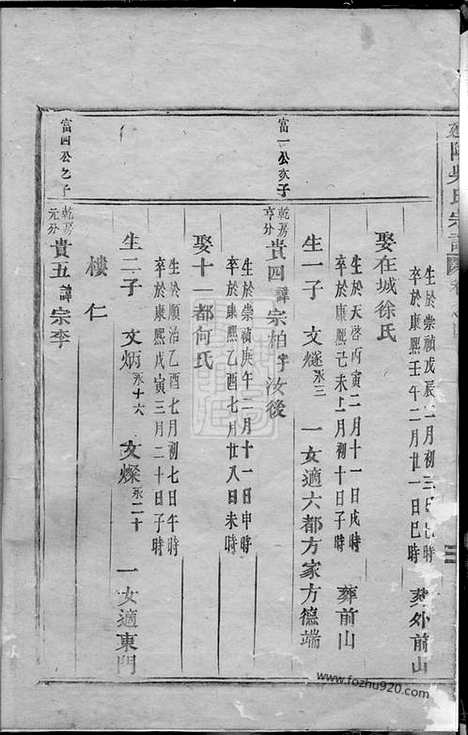 吳氏宗
生於崇禎戊辰二月初三日巳時
卒於康熙壬午二月廿一日巳時
葬外前山
娶在城徐氏
生於天啓丙寅二月十一日戌時
卒於康熙己未上月初十日子時
葬前山
生一子 文燧永三 一女適六都方家方德端
富一公亥子
乾房亨分貴四諱宗柏字汝後
生於崇禎庚午二月十一日申時
卒於康熙乙酉七月廿八日未時
娶十一都何氏
生於順治乙酉七月初七日午時
卒於康熙戊寅三月二十日子時
生二子 文炳永十六 文燦永二十 一女適東門
樓仁
富四公之子
乾房元分貴五諱宗李
www.fozhu920.com